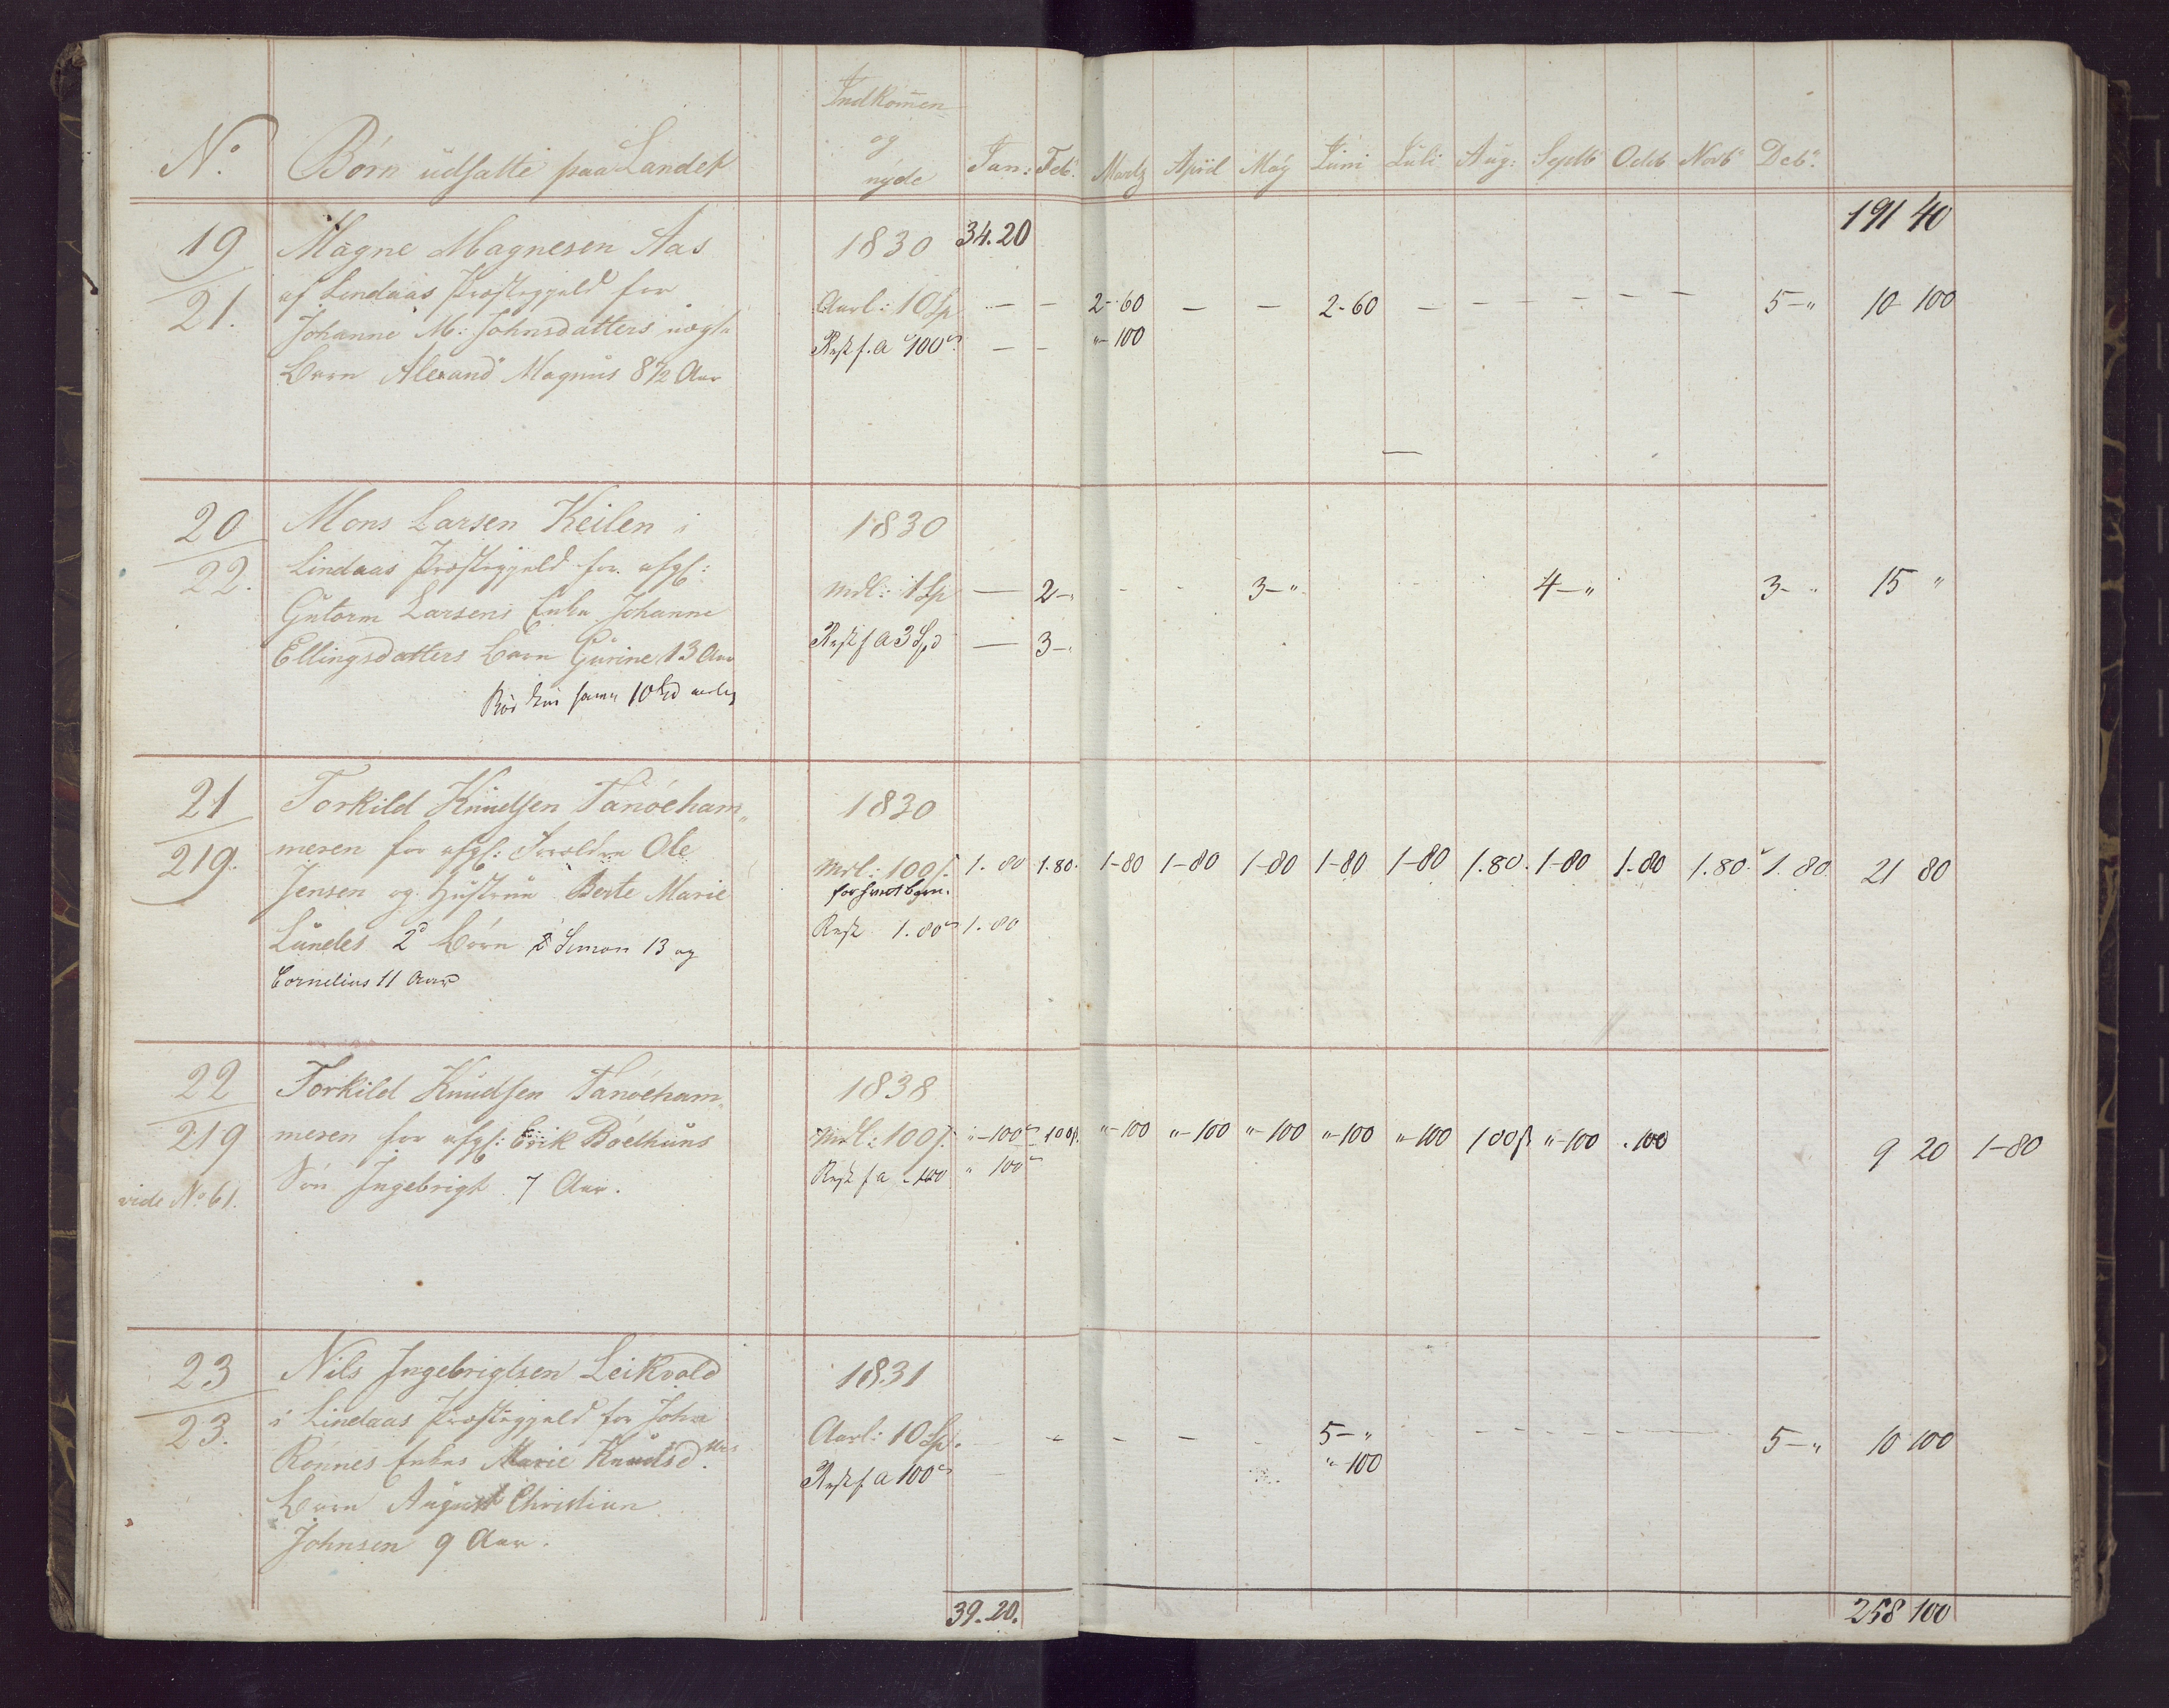 Indkom̄en
og
nÿde
N.º Børn udsatte paa Landet Jan: Feb. Martz April Maÿ Juni Juli Aug: Septb Octb Novb Dcb.
191 40
19 Magne Magnesen Aas 1830 34.20
af Lindaas Præstegjeld for Aarl: 10 Sp — — 2-60 — — 2-60 — — — — — — 5-" 10 100
21. Johanne M: Johnsdatters uægte Rest f. a 100 — — "-100
Barn Alexand Magnus 8½ Aar
20 Mons Larsen Keilen i 1830
22. Lindaas Præstegjeld for afg: Mdl: 1 Sp — 2-" - - 3-" 4-" 3-" 15 "
Gutorm Larsens Enke Johanne
Ellingsdatters Barn Gurine 13 Aar Rest f a 3 Spd — 3-"
10 Spd
21 Torkild Knudsen Tanöeham„ 1830
219. meren for afg: Forældre Ole Mdl: 100 1.80 1.80. 1-80 1-80 1-80 1-80 1-80 1.80. 1-80 1-80 1.80. 1.80 21 80
Jensen og Hustrue Berte Marie for hvert barn.
Lundes 2 Börn Simon 13 og Rest 1.80 1.80
Cornelius 11 Aar
22 Torkild Knudsen Tanöeham„ 1838
219 meren for afg: Erik Böelhuns Mdl: 100 "-100 100 "-100 "-100 "-100 "-100 "-100 100 "-100 .100 9 20 1-80
vide No 61. Sön Ingebrigt 7 Aar. Rest f a -100 " 100
23 Nils Ingebrigtsen Leikvold 1831
23. i Lindaas Præstegjeld for John Aarl: 10 Sp. — — — — - 5-" - - - - - 5-" 10 100
Rönnes Enkes Marie Knudsd. Rest f. a 100 "-100
Barn August Christian
Johnsen 9 Aar.
39.20. 258 100